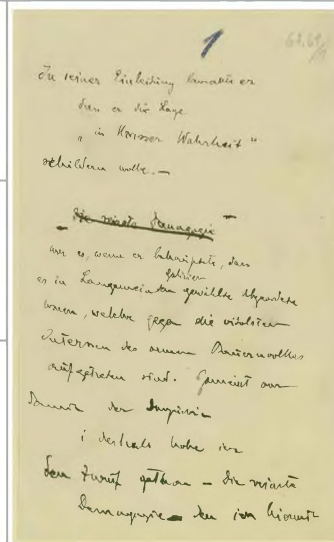 1
62.69/1
In seiner Einleitung bemerkte er
dass er die Lage
„ in Wahrheit "
schildern wolle.—
Die reinste Demagogie —
war es, wenn er behauptete, dass
es in gewählte Abgeordnete
waren, welche gegen die vitalsten
Interessen des armen Bauernvolkes
aufgetreten sind. Gemeint war
damit der
i deshalb habe ich
den Zuruf gethan — Die reinste
Demagogie — den ich hiermit